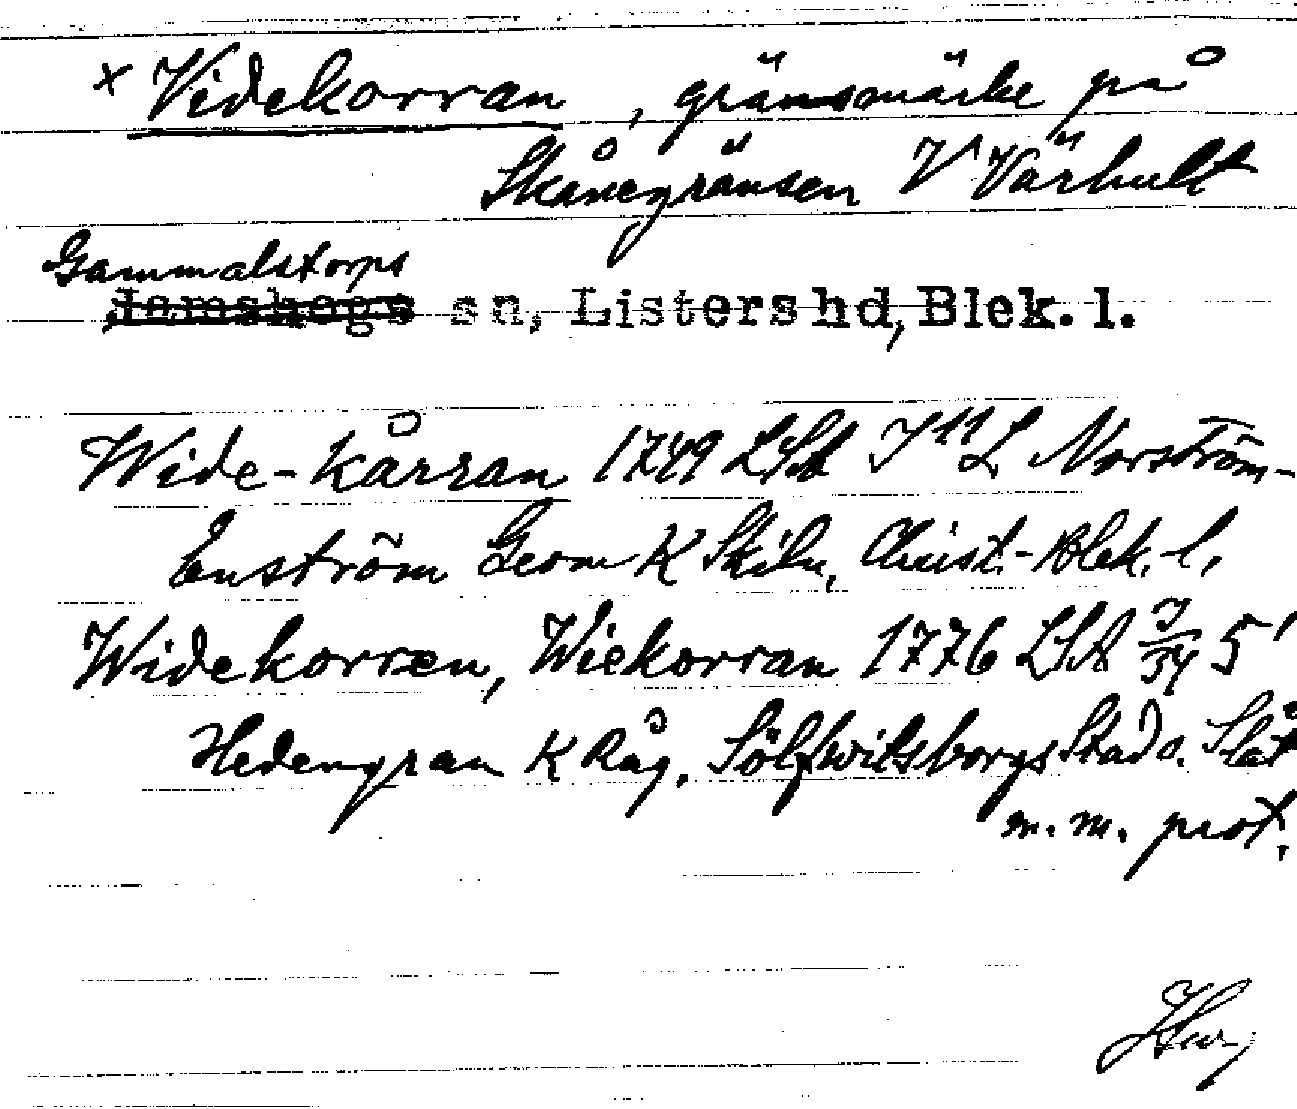 x Videkorran, gränsmärke på
Skånegränsen V Värhult
Gammalstorps
Jämshogs sn, Listers hd, Blek. l.
Wide-kårran 1749 LSA J11 L Norström-
Enström Geom K Skiln, Christ.-Blek. l.
Widekorren, Wiekorran 1776 LSA 5
Hedengran K Råg. Sölfwitsborgs Stad o. Slät
m.m. prot.